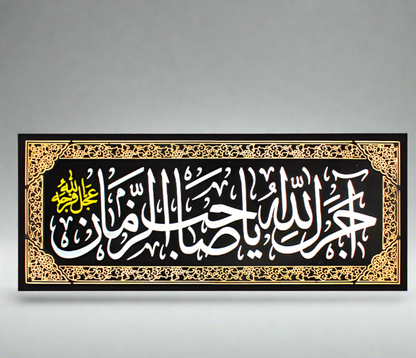 آجرک الله یا صاحب الزمان
عجل الله فرجه